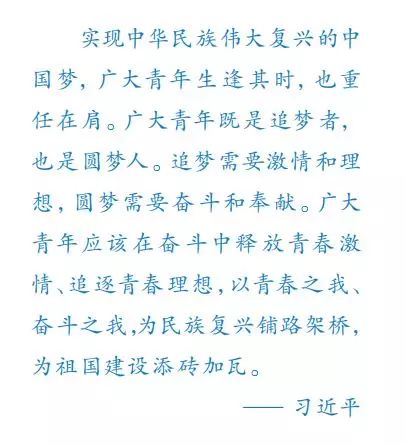 实现中华民族伟大复兴的中
国梦，广大青年生逢其时，也重
任在肩。广大青年既是追梦者，
也是圆梦人。追梦需要激情和理
想，圆梦需要奋斗和奉献。广大
青年应该在奋斗中释放青春激
情、追逐青春理想，以青春之我、
奋斗之我，为民族复兴铺路架桥，
为祖国建设添砖加瓦。
—— 习近平